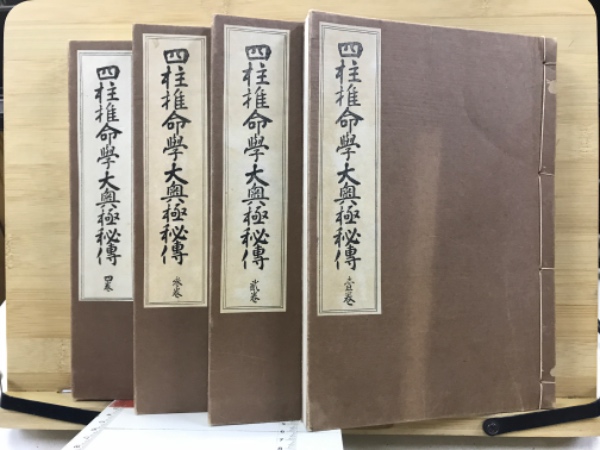 四柱推命學大奥極秘傳
壱巻
四柱推命學大奥極秘傳
貳巻
四柱推命學大奥極秘傳
参巻
四柱推命學大奥極秘傳
四巻